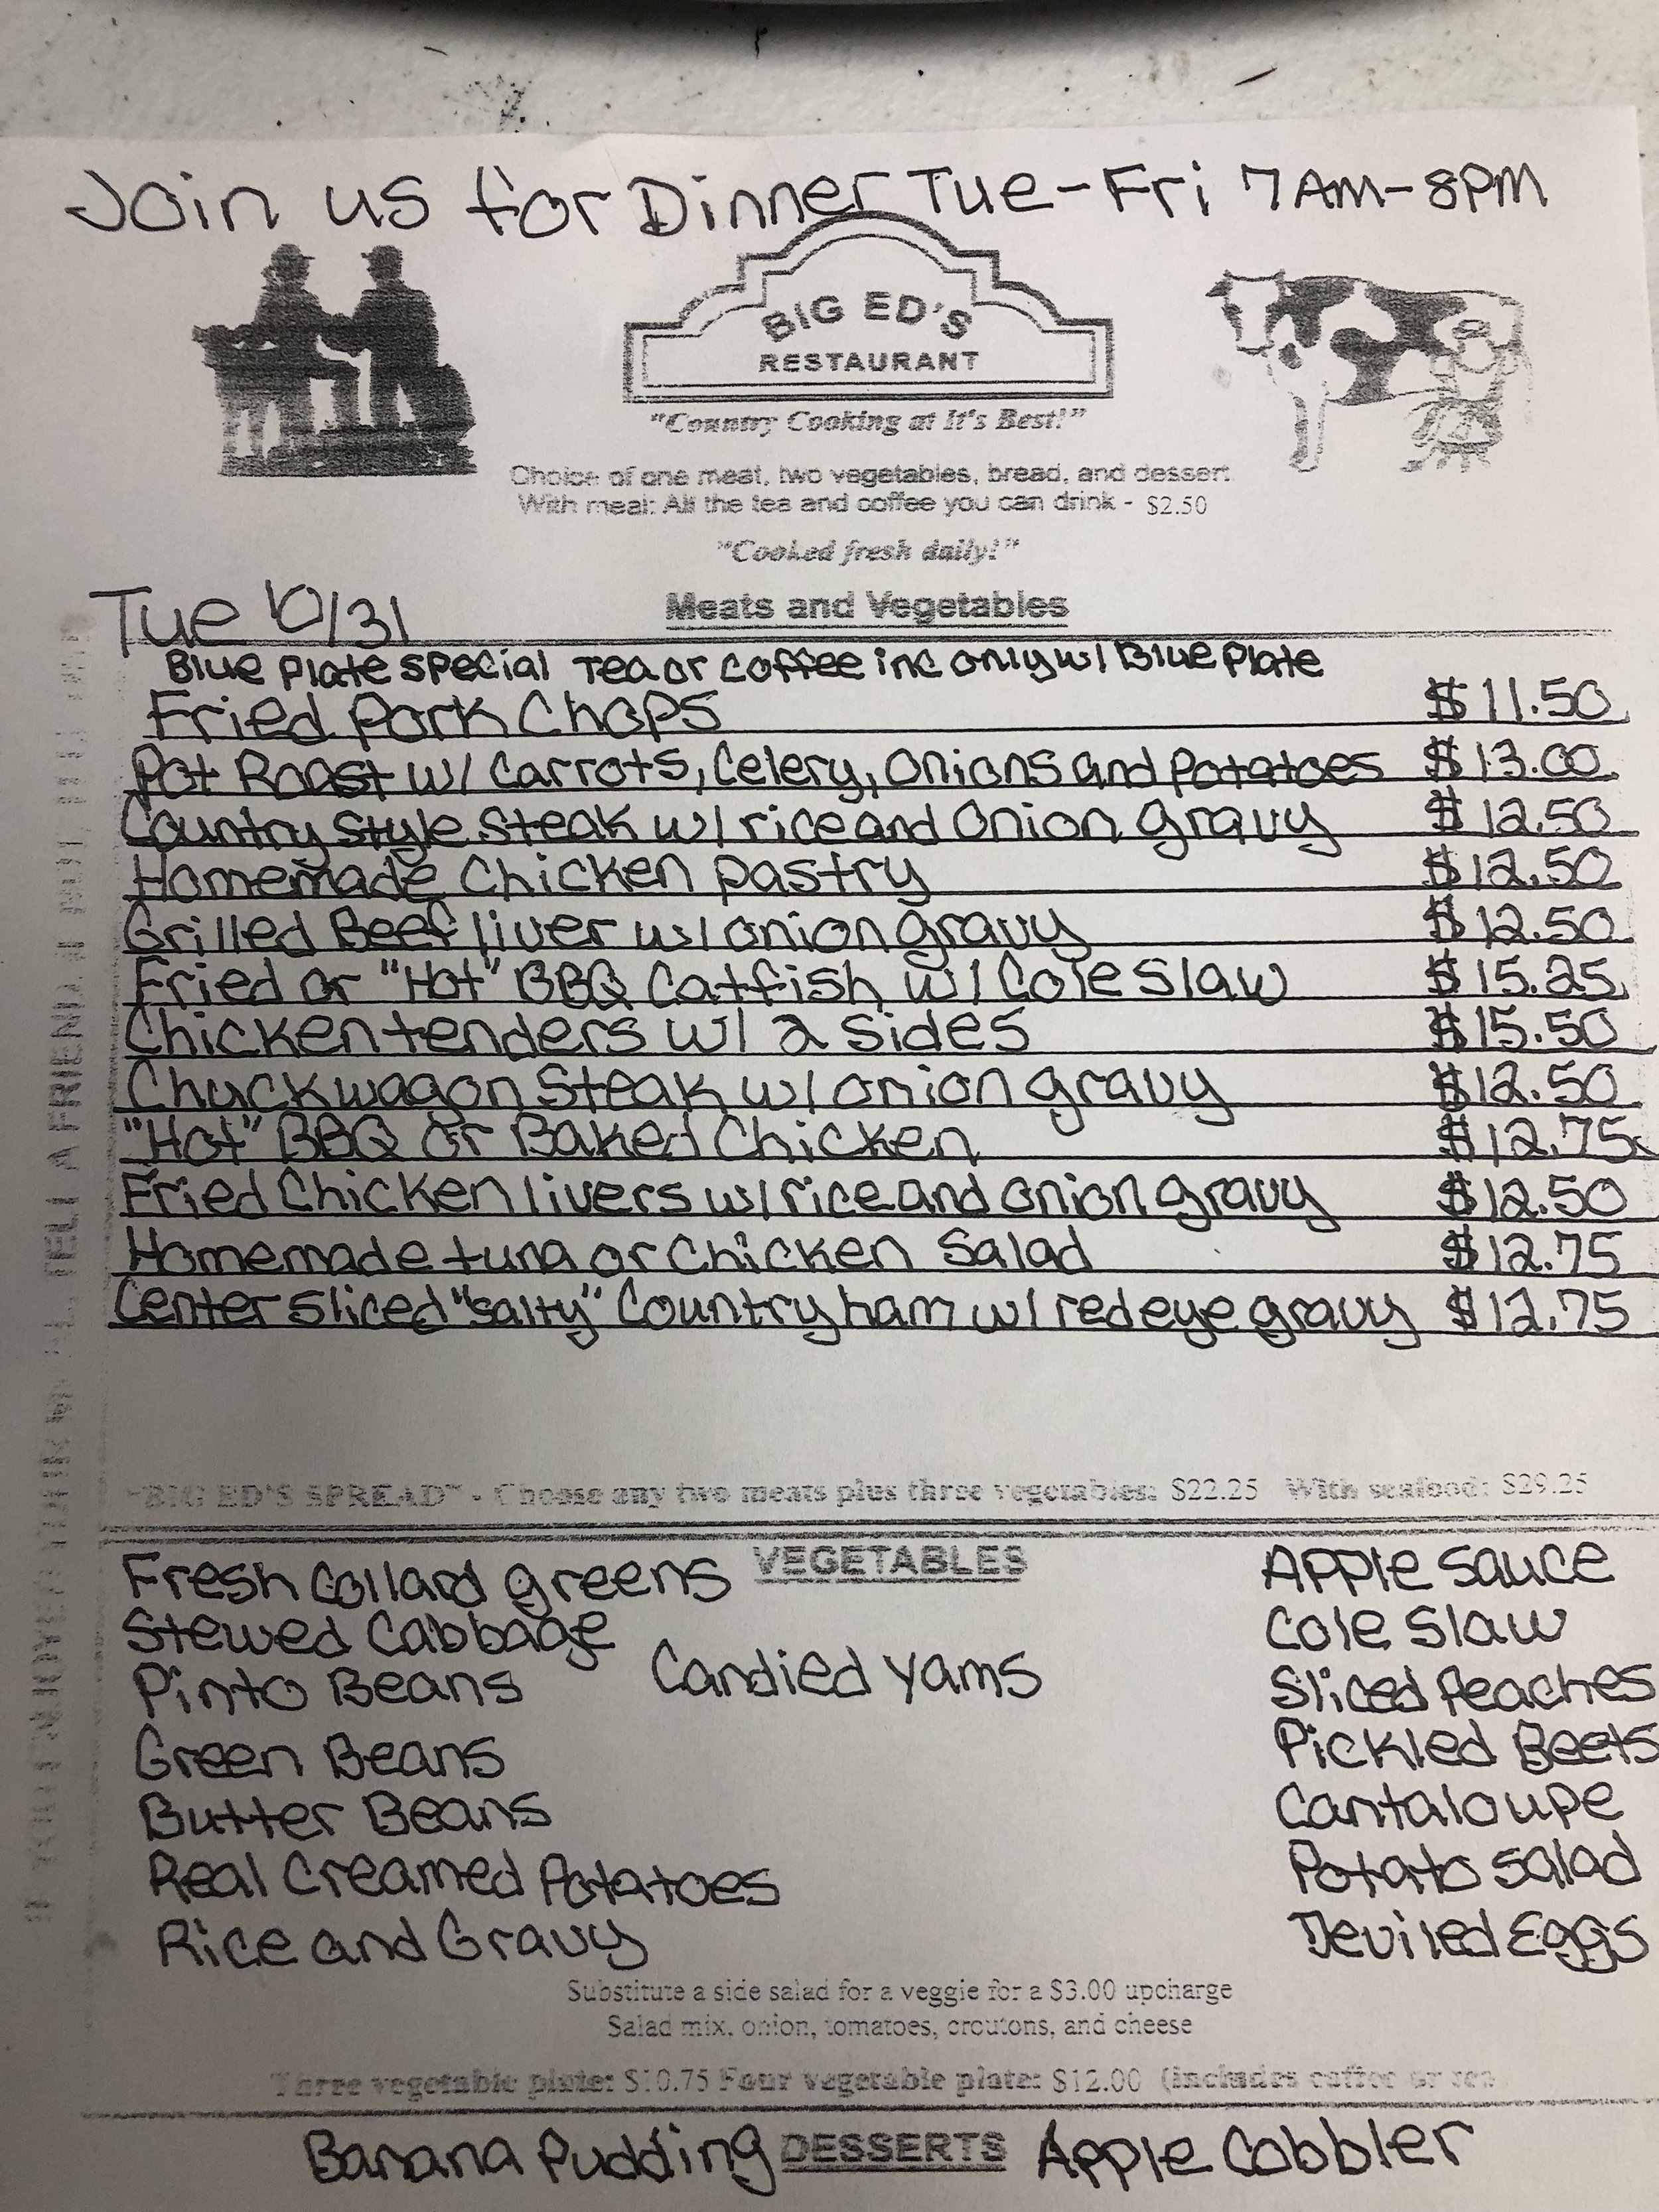 Join us for Dinner Tue-Fri 7AM-8PM
BIG ED'S
RESTAURANT
"Country Cooking at It's Best!"
Choice of one meat, two vegetables, bread, and dessert
With meal: All the tea and coffee you can drink - $2.50
"Cooked fresh daily!"
Tue 10/31
Meats and Vegetables
Blue Plate Special Tea or Coffee inc only w/ Blue Plate
Fried Pork Chops $11.50
Pot Roast w/ Carrots, Celery, Onions and Potatoes $13.00
Country Style Steak w/ rice and Onion gravy $12.50
Homemade Chicken pastry $12.50
Grilled Beef liver w/ onion gravy $12.50
Fried or "Hot" BBQ Catfish w/ Cole Slaw $15.25
Chicken tenders w/ 2 sides $15.50
Chuckwagon Steak w/ onion gravy $12.50
"Hot" BBQ or Baked Chicken $12.75
Fried Chicken livers w/ rice and onion gravy $12.50
Homemade tuna or Chicken Salad $12.75
Center Sliced "salty" Country ham w/ redeye gravy $12.75
TELL A FRIEND
"BIG ED'S SPREAD" - Choose any two meats plus three vegetables: $22.25 With seafood: $29.25
VEGETABLES
Fresh Collard greens
Stewed Cabbage
Pinto Beans
Green Beans
Butter Beans
Real Creamed Potatoes
Rice and Gravy
Candied Yams
Apple Sauce
Cole Slaw
Sliced Peaches
Pickled Beets
Cantaloupe
Potato Salad
Deviled Eggs
Substitute a side salad for a veggie for a $3.00 upcharge
Salad mix, onion, tomatoes, croutons, and cheese
Three vegetable plate: $10.75 Four vegetable plate: $12.00 (includes coffee or tea
Banana Pudding DESSERTS Apple Cobbler